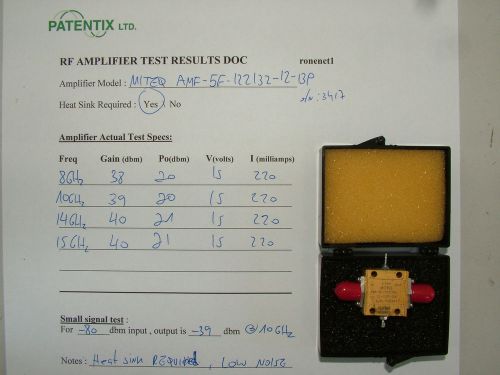 PATENTIX LTD.
RF AMPLIFIER TEST RESULTS DOC ronenct1
Amplifier Model : MITEQ AMF-5F-122132-12-13P
Heat Sink Required : Yes \ No s/n: 3417
Amplifier Actual Test Specs:
Freq Gain (dbm) Po(dbm) V(volts) I (milliamps)
8GHz 38 20 15 220
10GHz 39 20 15 220
14GHz 40 21 15 220
15GHz 40 21 15 220
Small signal test :
For -80 dbm input , output is -39 dbm @ 10GHz
Notes : Heat sink REQUIRED , LOW NOISE